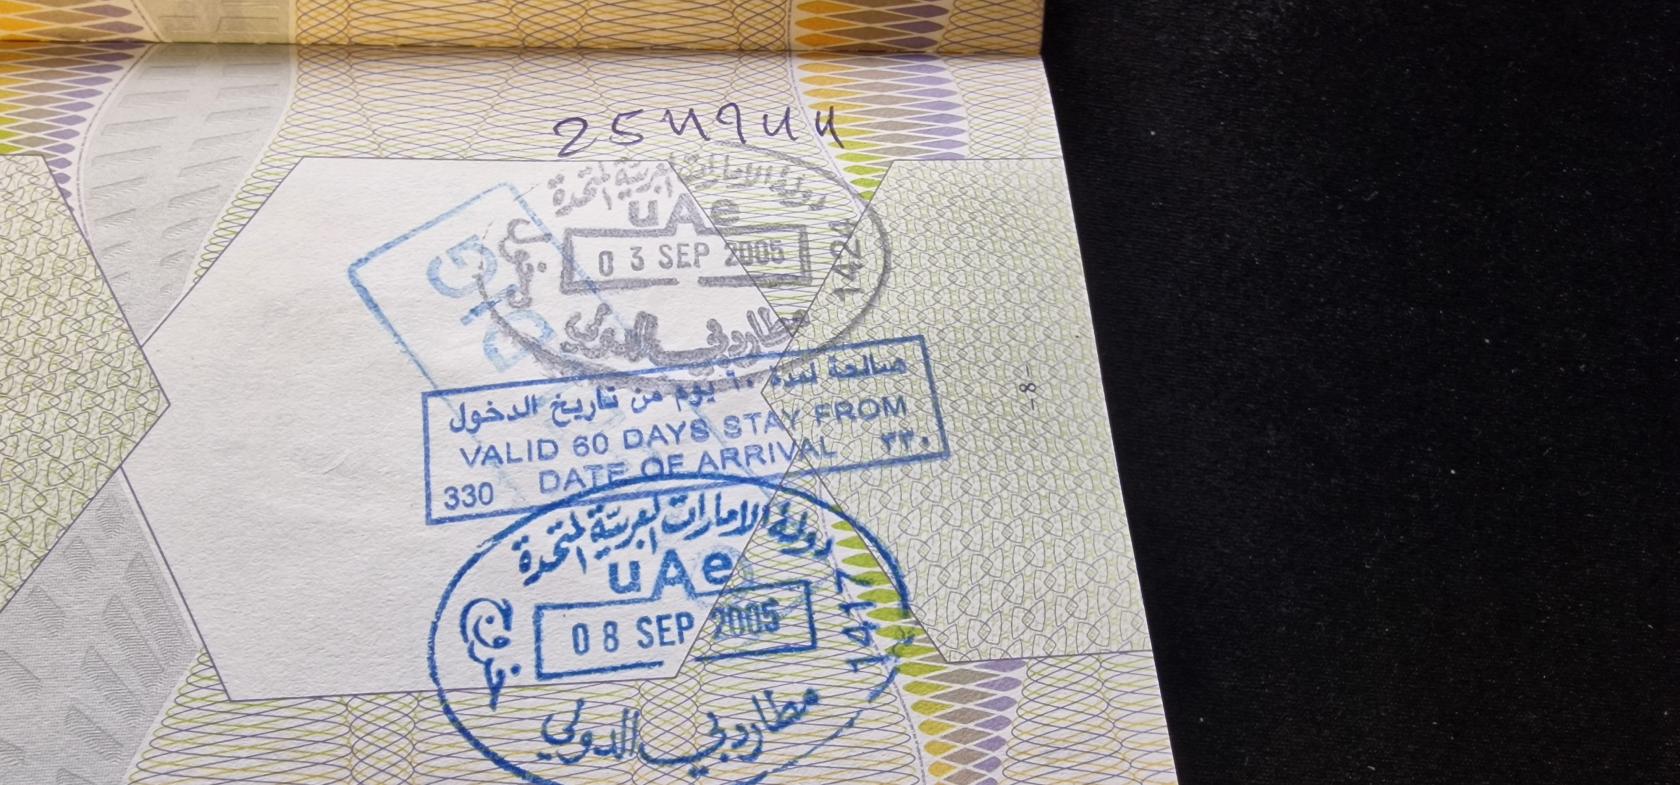 2549944
دولة الامارات العربية المتحدة
uAe
03 SEP 2005
1424
مطار دبي الدولي
صالحة لمدة ٦٠ يوم من تاريخ الدخول
VALID 60 DAYS STAY FROM
DATE OF ARRIVAL ٣٣٠
330
دولة الامارات العربية المتحدة
uAe
08 SEP 2005
1417
مطار دبي الدولي
-8-